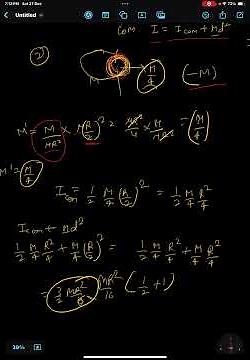 7:12 PM Sat 21 Dec
72%
Untitled
Com I = Icom + Md²
②
M
M/4 (-M)
M' = M/πR² × π(R/2)² = πR²/4 × M/πR² = (M/4)
M' = M/4
Icom = 1/2 M/4 (R/2)² = 1/2 M/4 R²/4
Icom + md²
1/2 M/4 R²/4 + M/4 (R/2)² = 1/2 M/4 R²/4 + M/4 R²/4
= 3/2 MR²/16 MR²/16 (1/2 + 1)
39%